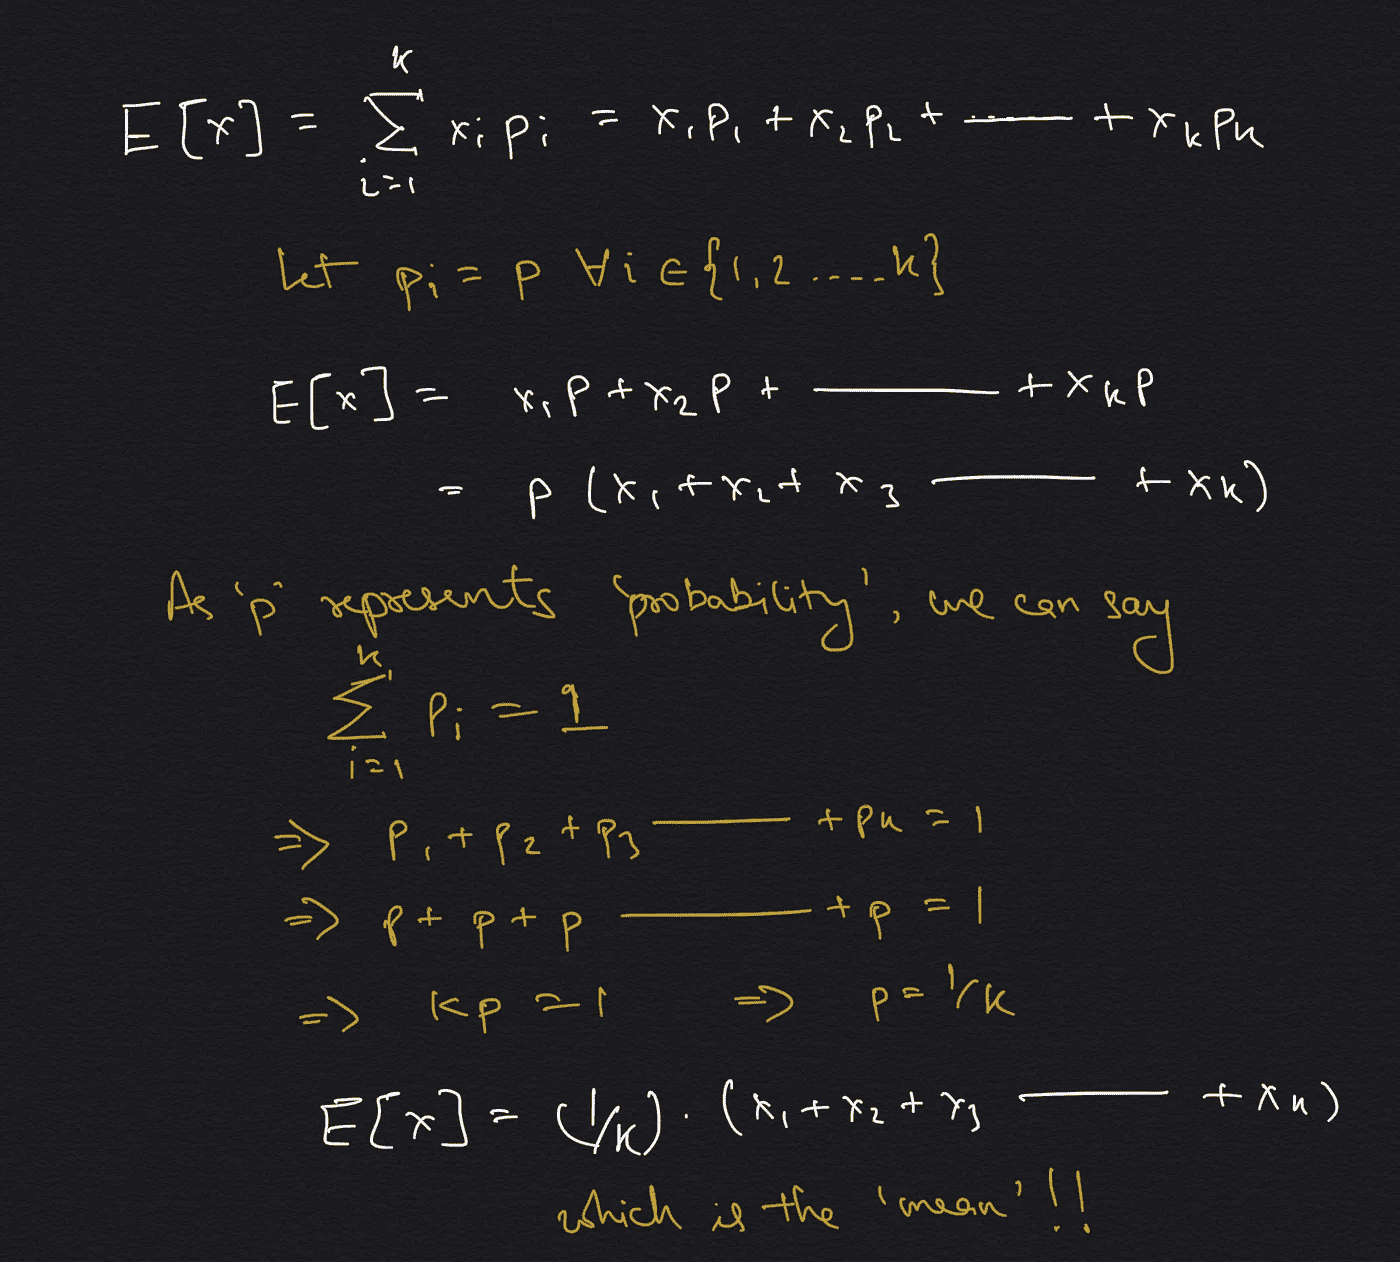 E[x] = Σ_{i=1}^{k} xᵢ pᵢ = x₁p₁ + x₂p₂ + —— + xₖpₖ
Let pᵢ = p ∀ i ∈ {1,2 ..... k}
E[x] = x₁p + x₂p + —— + xₖp
= p (x₁ + x₂ + x₃ —— + xₖ)
As 'p' represents 'probability', we can say
Σ_{i=1}^{k} pᵢ = 1
⇒ p₁ + p₂ + p₃ —— + pₖ = 1
⇒ p + p + p —— + p = 1
⇒ kp = 1 ⇒ p = 1/k
E[x] = (1/k) · (x₁ + x₂ + x₃ —— + xₖ)
which is the 'mean' !!